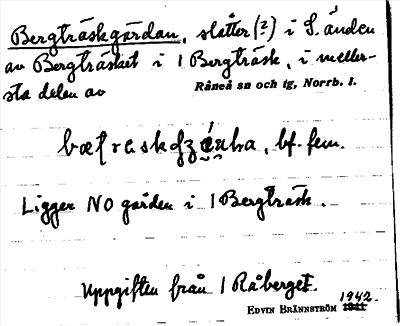 Bergträskgärdan, slåtter (?) i S. änden
av Bergträsket i 1 Bergträsk, i meller-
sta delen av
Råneå sn och tg, Norrb. l.
bf. fem.
Ligger NO gården i 1 Bergträsk.
Uppgiften från 1 Råberget.
1942.
EDVIN BRÄNNSTRÖM 1941